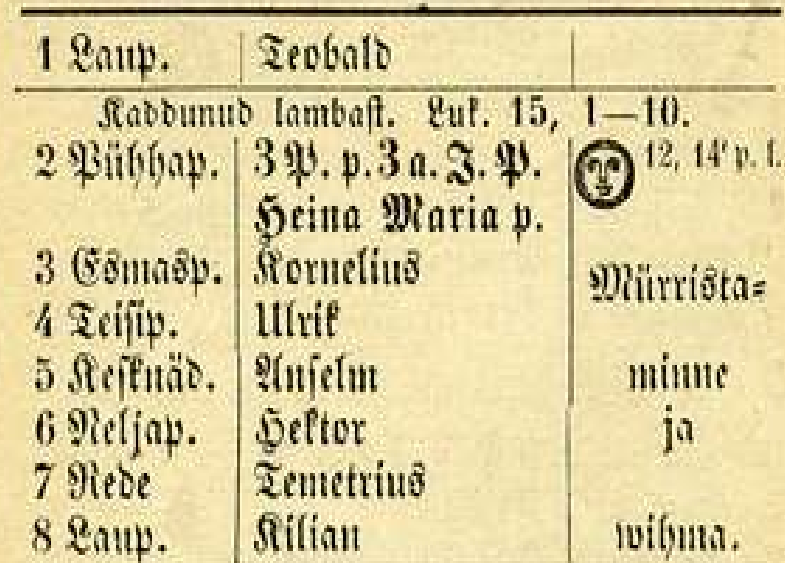 1 Laup. Teobald
Kaddunud lambast. Luk. 15, 1—10.
2 Pühhap. 3 P. p. 3 a. J. P. 12, 14' p. l.
Heina Maria p.
3 Esmasp. Kornelius
Mürrista=
4 Teisip. Ulrik
5 Kesknäd. Anselm minne
6 Neljap. Hektor ja
7 Rede Temetrius
8 Laup. Kilian wihma.